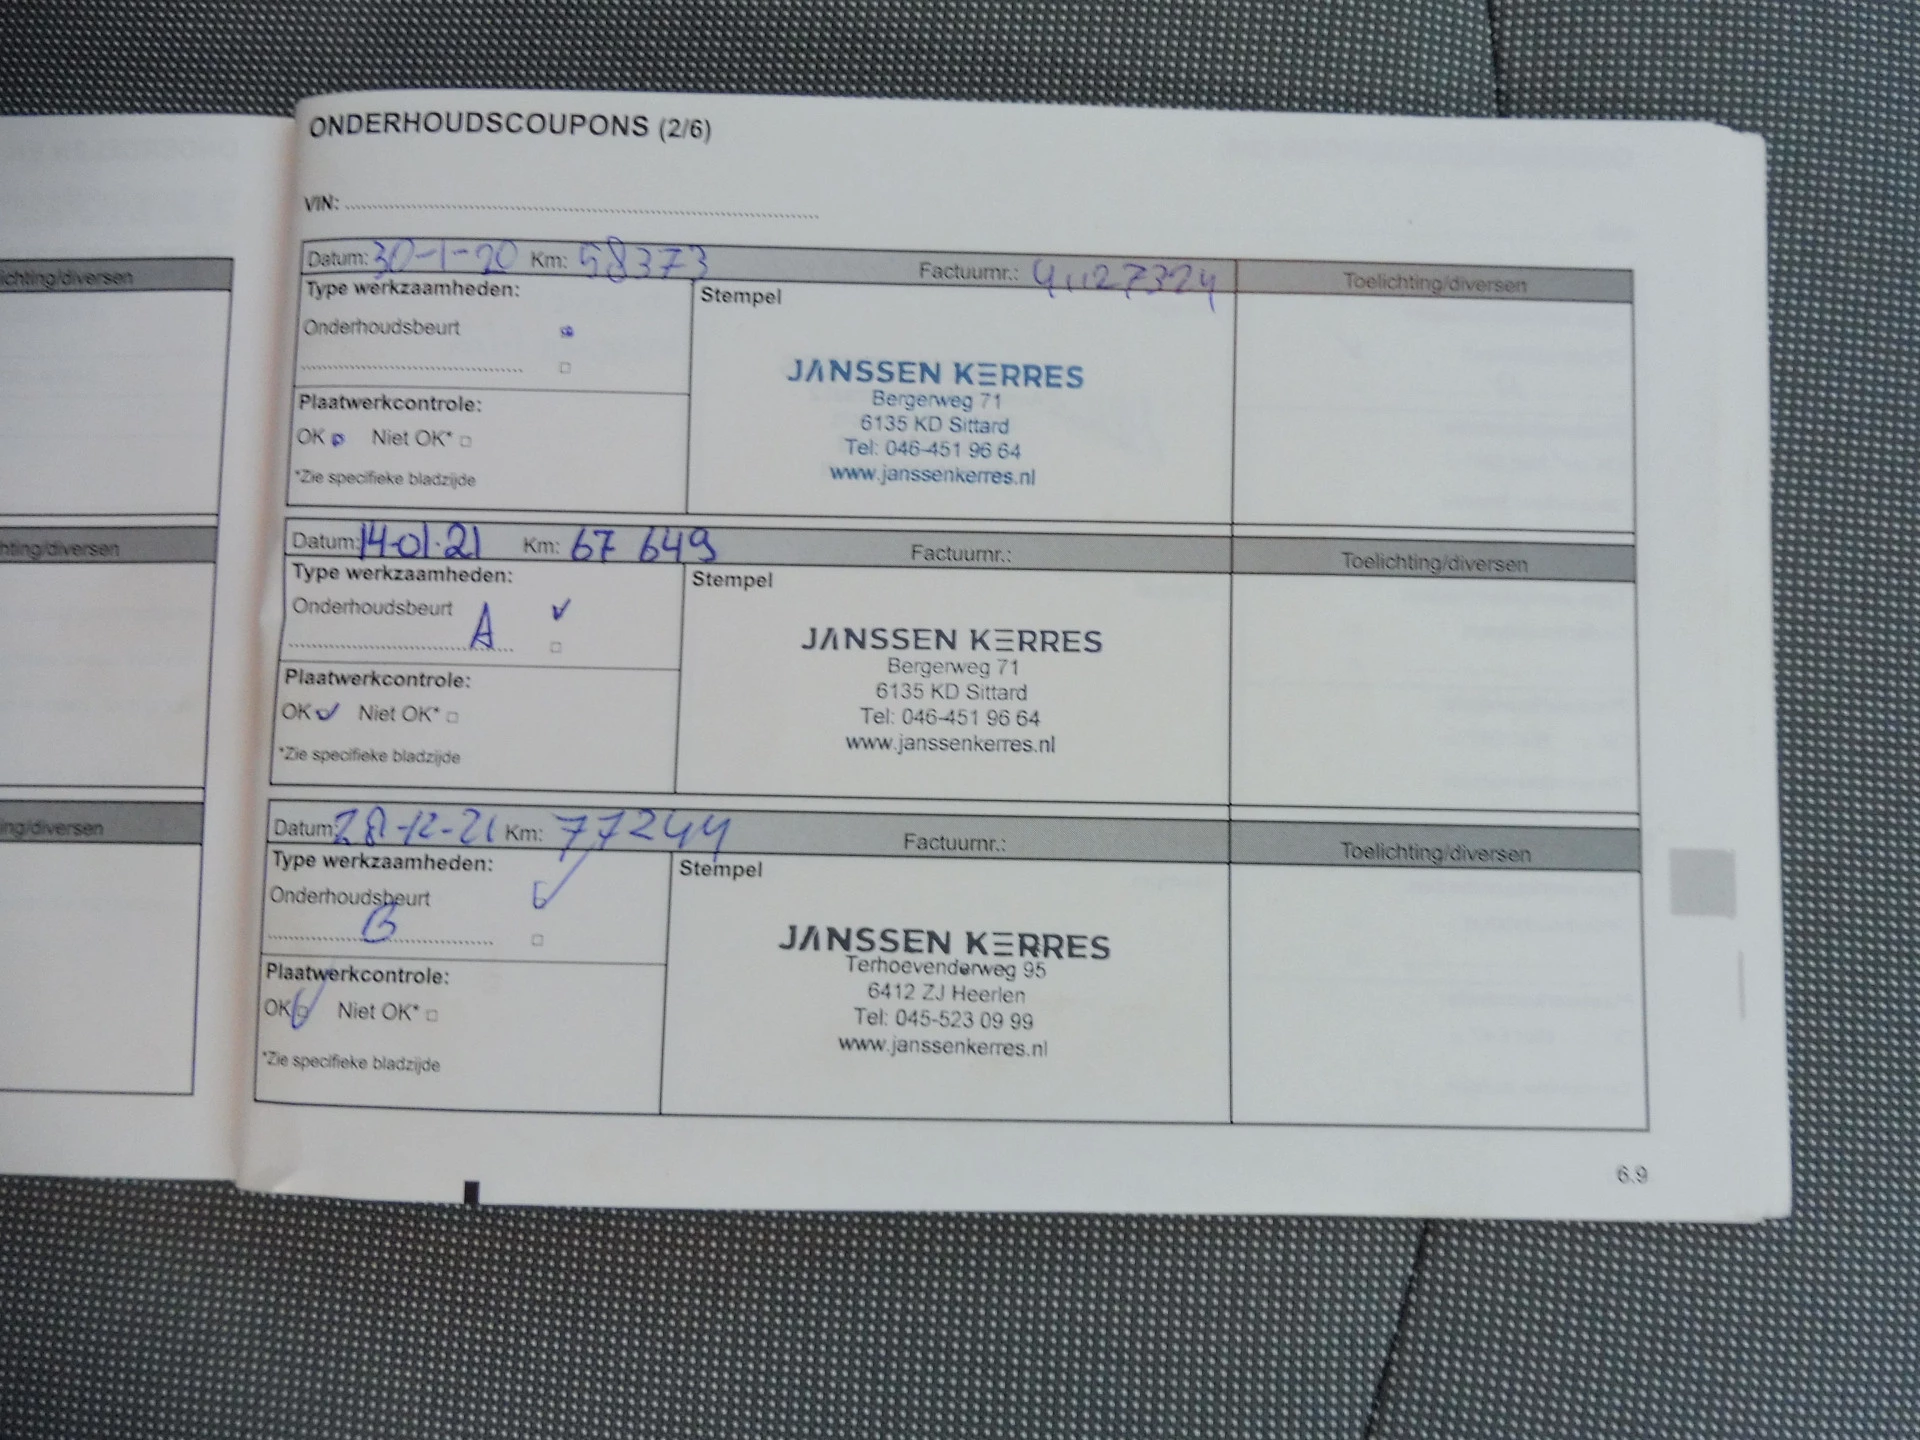 ONDERHOUDSCOUPONS (2/6)
VIN:
Datum: 30-1-20 Km: 58373 Factuurnr.: Toelichting/diversen
Type werkzaamheden:
Stempel
Onderhoudsbeurt
JANSSEN KERRES
Bergerweg 71
6135 KD Sittard
Tel: 046-451 96 64
www.janssenkerres.nl
Plaatwerkcontrole:
OK Niet OK*
*Zie specifieke bladzijde
Datum: 14-01-21 Km: 67 649 Factuurnr.: Toelichting/diversen
Type werkzaamheden:
Stempel
Onderhoudsbeurt
A
JANSSEN KERRES
Bergerweg 71
6135 KD Sittard
Tel: 046-451 96 64
www.janssenkerres.nl
Plaatwerkcontrole:
OK Niet OK*
*Zie specifieke bladzijde
Datum: 28-12-21 Km: 77244 Factuurnr.: Toelichting/diversen
Type werkzaamheden:
Stempel
Onderhoudsbeurt
B
JANSSEN KERRES
Terhoevenderweg 95
6412 ZJ Heerlen
Tel: 045-523 09 99
www.janssenkerres.nl
Plaatwerkcontrole:
OK Niet OK*
*Zie specifieke bladzijde
6.9